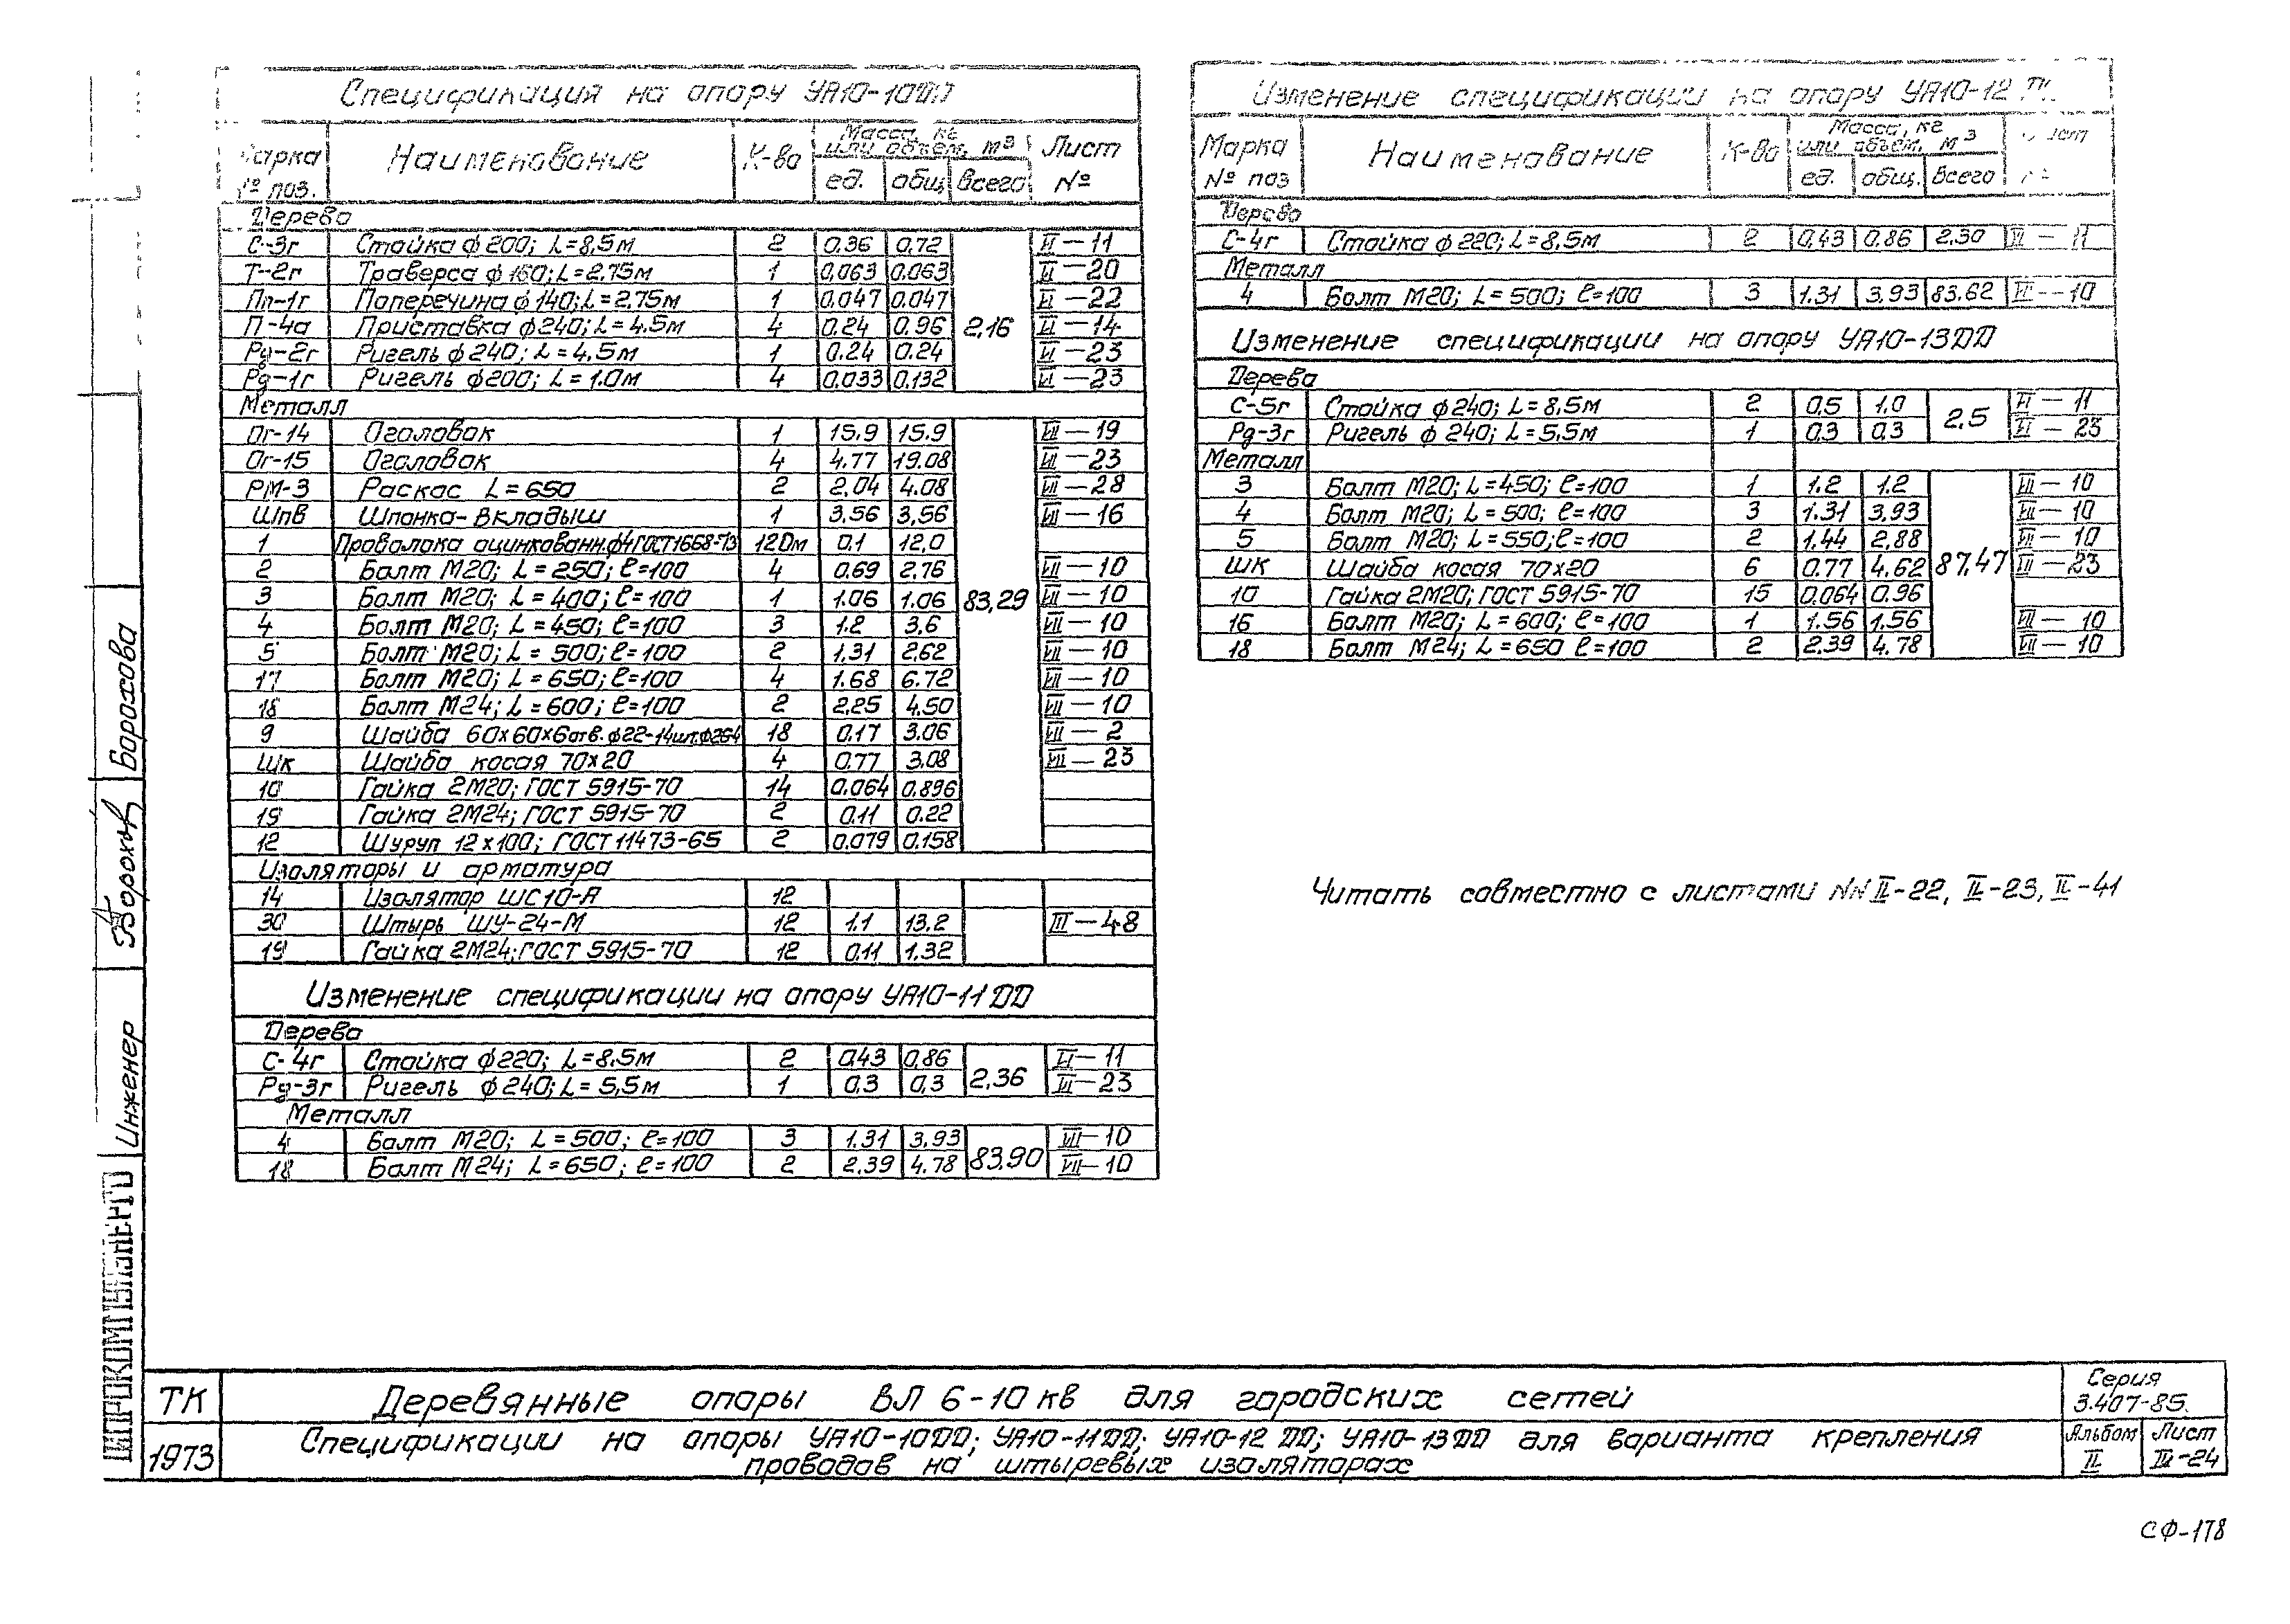 Спецификация на опору УА10-10ДД
Марка № поз. Наименование К-во Масса, кг или объем, м³ ед. общ. Всего Лист №
Дерево
С-3г Стойка ф200; L=8,5м 2 0.36 0.72 2,16 VI-11
Т-2г Траверса ф160; L=2.75м 1 0,063 0.063 VI-20
Пп-1г Поперечина ф140; L=2.75м 1 0.047 0.047 VI-22
П-4а Приставка ф240; L=4.5м 4 0.24 0.96 VI-14
Рд-2г Ригель ф240; L=4,5м 1 0.24 0.24 VI-23
Рд-1г Ригель ф200; L=1.0м 4 0.033 0.132 VI-23
Металл
Ог-14 Оголовок 1 15.9 15.9 83,29 VII-19
Ог-15 Оголовок 4 4.77 19.08 VII-23
РМ-3 Раскос L=650 2 2.04 4.08 VII-28
Шпв Шпонка-вкладыш 1 3.56 3,56 VII-16
1 Проволока оцинкованн. ф4 ГОСТ 1668-73 120м 0.1 12,0
2 Болт М20; L=250; ℓ=100 4 0.69 2.76 VII-10
3 Болт М20; L=400; ℓ=100 1 1.06 1.06 VII-10
4 Болт М20; L=450; ℓ=100 3 1.2 3.6 VII-10
5 Болт М20; L=500; ℓ=100 2 1.31 2.62 VII-10
17 Болт М20; L=650; ℓ=100 4 1.68 6.72 VII-10
18 Болт М24; L=600; ℓ=100 2 2.25 4.50 VII-10
9 Шайба 60х60х6 отв. ф22-14шт. ф26-4 18 0.17 3.06 VII-2
Шк Шайба косая 70х20 4 0.77 3.08 VII-23
10 Гайка 2М20; ГОСТ 5915-70 14 0.064 0.896
19 Гайка 2М24; ГОСТ 5915-70 2 0.11 0.22
12 Шуруп 12х100; ГОСТ 11473-65 2 0.079 0.158
Изоляторы и арматура
14 Изолятор ШС10-А 12
30 Штырь ШУ-24-М 12 1.1 13.2 III-48
19 Гайка 2М24; ГОСТ 5915-70 12 0.11 1.32
Изменение спецификации на опору УА10-11ДД
Дерево
С-4г Стойка ф220; L=8.5м 2 0.43 0,86 2,36 VI-11
Рд-3г Ригель ф240; L=5,5м 1 0.3 0,3 VI-23
Металл
4 Болт М20; L=500; ℓ=100 3 1.31 3.93 83.90 VII-10
18 Болт М24; L=650; ℓ=100 2 2.39 4.78 VII-10
Изменение спецификации на опору УА10-12
Марка № поз Наименование К-во Масса, кг или объем, м³ ед. общ. Всего Лист
Дерево
С-4г Стойка ф220; L=8,5м 2 0,43 0.86 2.30 VI-11
Металл
4 Болт М20; L=500; ℓ=100 3 1.31 3.93 83.62 VII-10
Изменение спецификации на опору УА10-13ДД
Дерево
С-5г Стойка ф240; L=8,5м 2 0,5 1.0 2,5 VI-11
Рд-3г Ригель ф240; L=5,5м 1 0.3 0.3 VI-23
Металл
3 Болт М20; L=450; ℓ=100 1 1.2 1.2 87,47 VII-10
4 Болт М20; L=500; ℓ=100 3 1.31 3,93 VII-10
5 Болт М20; L=550; ℓ=100 2 1.44 2.88 VII-10
Шк Шайба косая 70х20 6 0.77 4.62 VII-23
10 Гайка 2М20; ГОСТ 5915-70 15 0.064 0.96
16 Болт М20; L=600; ℓ=100 1 1.56 1.56 VII-10
18 Болт М24; L=650 ℓ=100 2 2.39 4.78 VII-10
Читать совместно с листами NN II-22, II-23, II-41
ГИПРОКОММУНЭНЕРГО
Инженер
Борохова
ТК Деревянные опоры ВЛ 6-10 кв для городских сетей Серия 3.407-85.
1973 Спецификации на опоры УА10-10ДД; УА10-11ДД; УА10-12 ДД; УА10-13ДД для варианта крепления
проводов на штыревых изоляторах
Альбом II Лист III-24
СФ-178